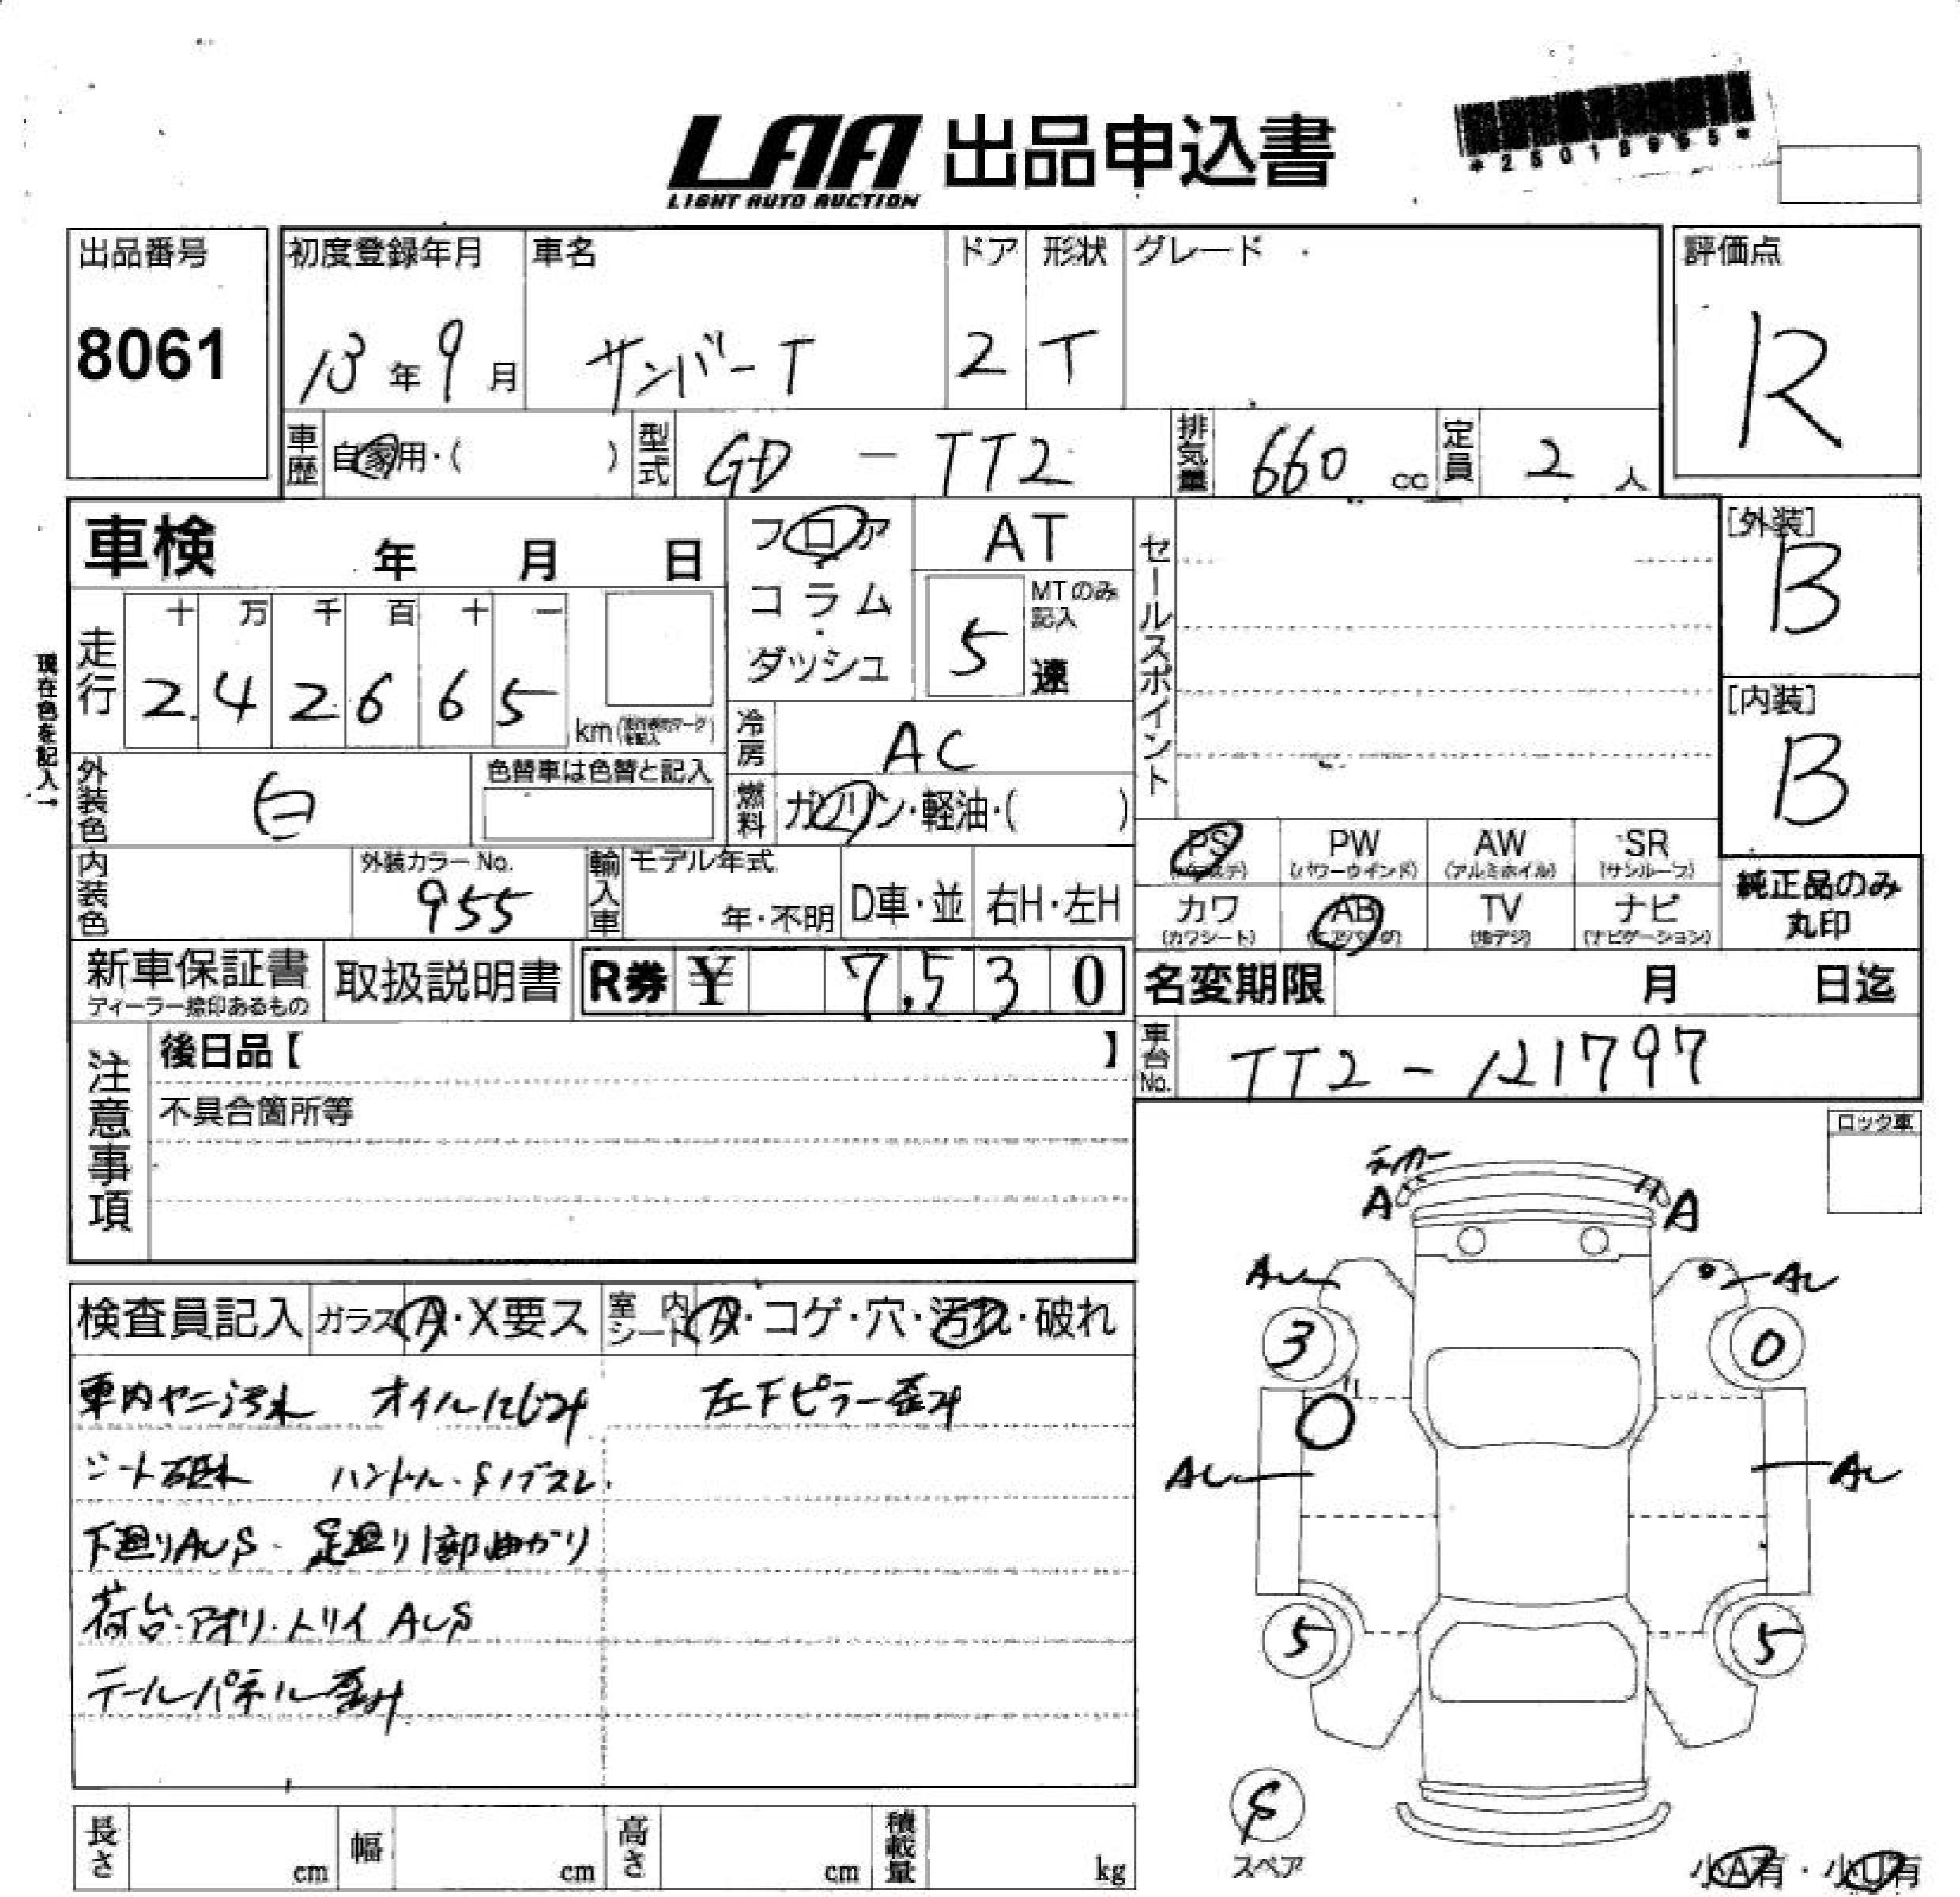 LAA 出品申込書
LIGHT AUTO AUCTION
出品番号
8061
初度登録年月
13年9月
車名
サンバーT
ドア
2
形状
T
グレード
評価点
R
車歴
自家用・( )
型式
GD - TT2
排気量
660 cc
定員
2 人
車検 年 月 日
フロア
コラム
・
ダッシュ
AT
MTのみ
記入
5 速
セールスポイント
[外装]
B
[内装]
B
現在色を記入→
走行
十 万 千 百 十 一
2.42665
km
冷房
AC
外装色
白
色替車は色替と記入
燃料
ガソリン・軽油・( )
PS
PW
(パワーウインド)
AW
(アルミホイル)
SR
(サンルーフ)
カワ
(カワシート)
AB
(エアバッグ)
TV
(地デジ)
ナビ
(ナビゲーション)
純正品のみ
丸印
内装色
外装カラーNo.
955
輸入車
モデル年式
年・不明
D車・並
右H・左H
新車保証書
ディーラー捺印あるもの
取扱説明書
R券 ¥ 7,530
名変期限 月 日迄
車台No.
TT2-121797
注意事項
後日品【 】
不具合箇所等
ロック車
検査員記入
ガラス A・X要ス
室内シート A・コゲ・穴・汚れ・破れ
車内ヤニ汚れ オイルにじみ 左下ピラー歪み
シート破れ ハンドル・Sノブスレ
下廻りAUS 足廻り1部曲がり
荷台・アオリ・トリイ AUS
テールパネル歪み
A
A
AU
AU
3
0
AU
AU
5
5
S
スペア
小A有・小U有
長さ cm
幅 cm
高さ cm
積載量 kg